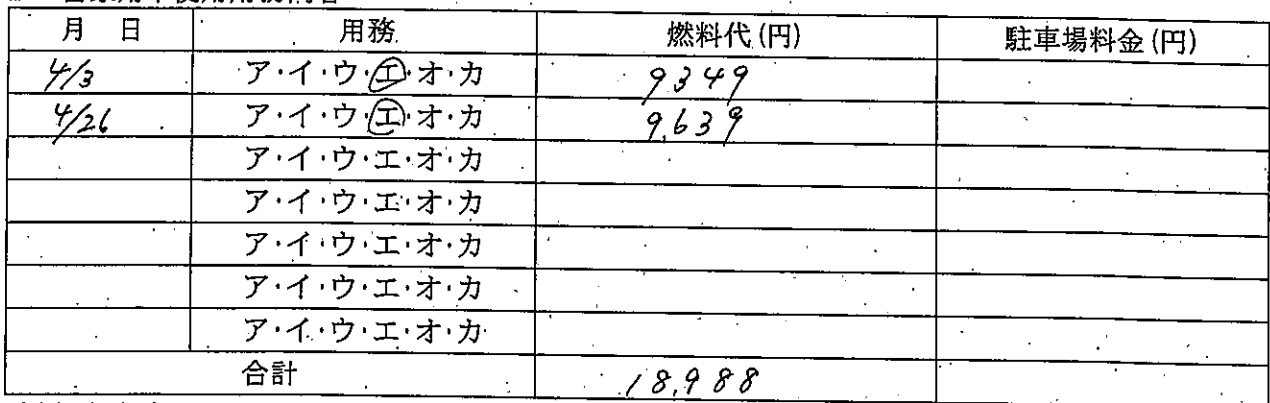 月 日 用務 燃料代(円) 駐車場料金(円)
4/3 ア・イ・ウ・エ・オ・カ 9349
4/26 ア・イ・ウ・エ・オ・カ 9,639
ア・イ・ウ・エ・オ・カ
ア・イ・ウ・エ・オ・カ
ア・イ・ウ・エ・オ・カ
ア・イ・ウ・エ・オ・カ
ア・イ・ウ・エ・オ・カ
合計 18,988